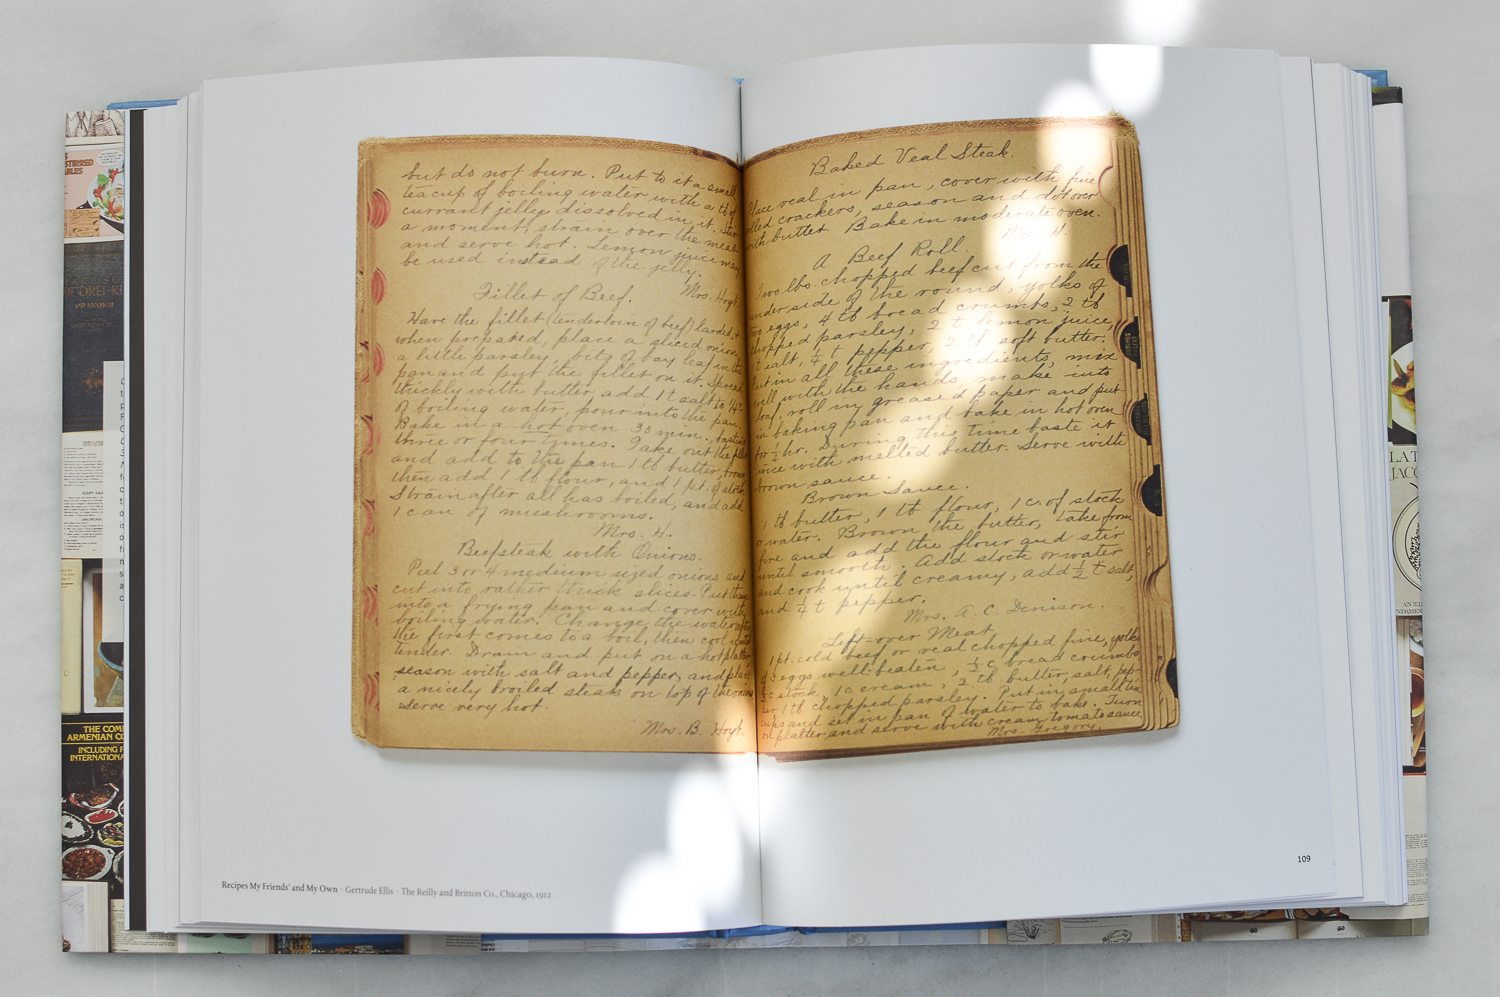 but do not burn. Put to it a small
teacup of boiling water with a tb of
currant jelly dissolved in it. Stir
a moment, strain over the meat
and serve hot. Lemon juice may
be used instead of the jelly.
Mrs. Hoyt.
Fillet of Beef.
Have the fillet (tenderloin of beef) larded, &
when prepared, place a sliced onion,
a little parsley, bits of bay leaf in the
pan and put the fillet on it. Spread
thickly with butter, add 1 t salt to
of boiling water, pour into the pan.
Bake in a hot oven 30 min.,
three or four times. Take out the
and add to the pan 1 tb butter, brown
then add 1 tb flour, and 1 pt. of stock
Strain after all has boiled, and add
1 can of mushrooms.
Mrs. H.
Beefsteak with Onions.
Put 3 or 4 medium sized onions and
cut into rather thick slices. Put them
into a frying pan and cover with
boiling water. Change the water after
the first comes to a boil, then cook until
tender. Drain and put on a hot platter,
season with salt and pepper, and place
a nicely broiled steak on top of the onions
serve very hot.
Mrs. B. Hoyt.
Baked Veal Steak.
lace veal in pan, cover with fine
olled crackers, season and dot over
with butter. Bake in moderate oven.
Mrs. H.
A Beef Roll.
Two lbs. chopped beef cut from the
under side of the round, yolks of
two eggs, 4 tb bread crumbs, 2 tb
chopped parsley, 2 t lemon juice,
t salt, ¼ t pepper, 2 tb soft butter.
Put in all these ingredients, mix
well with the hands, make into
loaf, roll in greased paper and put
in baking pan and bake in hot oven
for ½ hr. During this time baste it
twice with melted butter. Serve with
brown sauce.
Brown Sauce.
1 tb butter, 1 tb flour, 1 c. of stock
or water. Brown the butter, take from
fire and add the flour and stir
until smooth. Add stock or water
and cook until creamy, add ½ t salt,
and ¼ t pepper.
Mrs. A. C. Denison.
Left-over Meat,
1 pt. cold beef or veal chopped fine, yolks
of 3 eggs well-beaten, ½ c bread crumbs
½ c stock, 1 c cream, 2 tb butter, salt, pep-
per, 1 tb chopped parsley. Put in small tin
cups and set in pan of water to bake. Turn
on platter and serve with cream tomato sauce
Mrs. Gregory.
109
Recipes My Friends' and My Own · Gertrude Ellis · The Reilly and Britton Co., Chicago, 1912
THE COM
ARMENIAN CO
INCLUDING F
INTERNATIONA